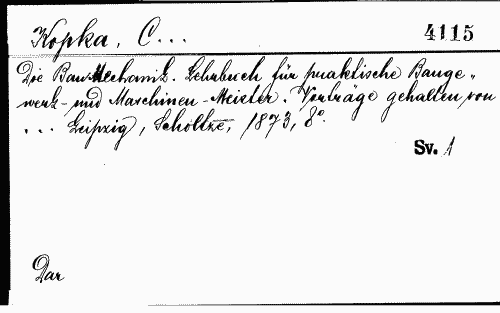 Kopka, C...
4115
Die Bau-Mechanik. Lehrbuch für praktische Bauge-
werk- und Maschinen-Meister. Vorträge gehalten von
... Leipzig, Scholtze, 1873, 8°
Sv. 1
Dar